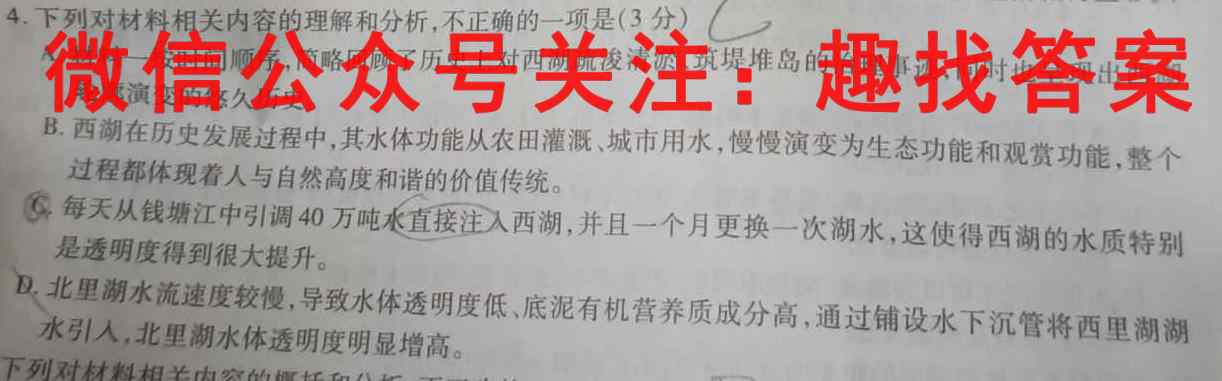 4. 下列对材料相关内容的理解和分析,不正确的一项是(3 分)
微信公众号关注：趣找答案
顺序,简略回顾了历史上对西湖疏浚清淤、筑堤堆岛的
演变的悠久历史
B. 西湖在历史发展过程中,其水体功能从农田灌溉、城市用水,慢慢演变为生态功能和观赏功能,整个
过程都体现着人与自然高度和谐的价值传统。
C. 每天从钱塘江中引调 40 万吨水直接注入西湖,并且一个月更换一次湖水,这使得西湖的水质特别
是透明度得到很大提升。
D. 北里湖水流速度较慢,导致水体透明度低、底泥有机营养质成分高,通过铺设水下沉管将西里湖湖
水引入,北里湖水体透明度明显增高。
下列对材料相关内容的概括和分析